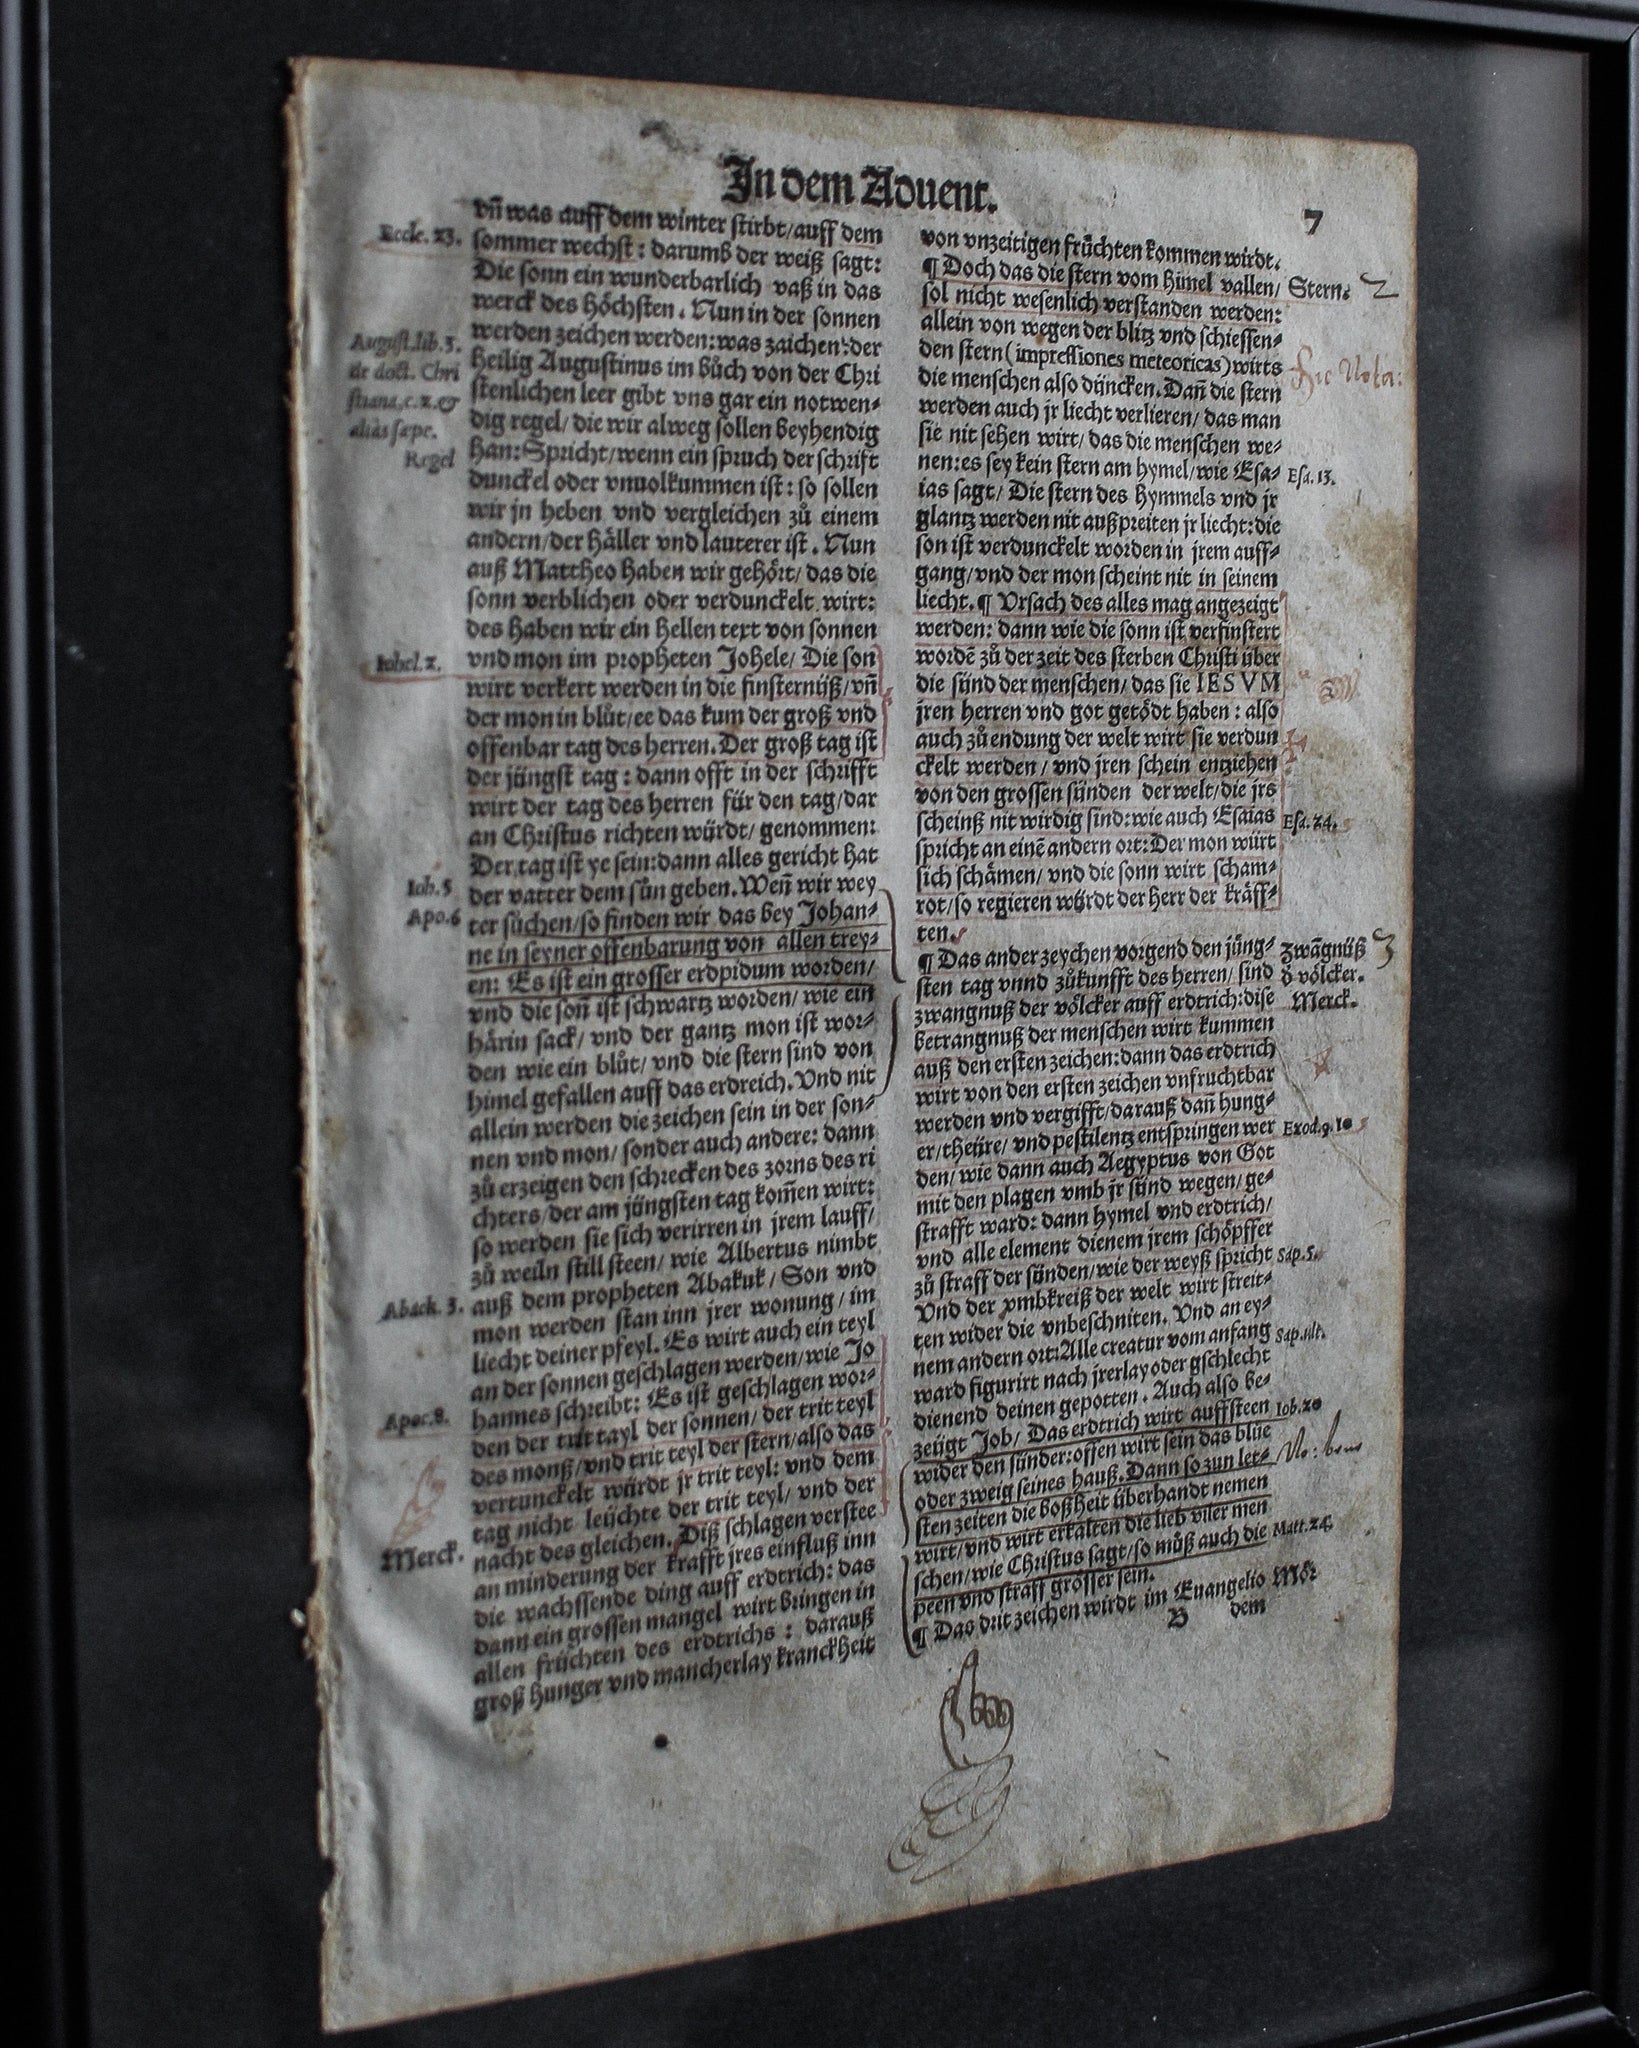 In dem Aduent.
7
vñ was auff dem winter stirbt/auff dem
Eccle. 23.
sommer wechst: darumb der weiß sagt:
Die sonn ein wunderbarlich vaß in das
werck des höchsten. Nun in der sonnen
werden zeichen werden:was zaichen:der
August.lib.3.
de doct. Chri
stiana.c.2.&
alias sæpe.
Regel
heilig Augustinus im bůch von der Chri
stenlichen leer gibt vns gar ein notwen-
dig regel/die wir alweg sollen beyhendig
han:Spricht/wenn ein spruch der schrift
dunckel oder vnuolkummen ist: so sollen
wir jn heben vnd vergleichen zů einem
andern/der häller vnd lauterer ist. Nun
auß Mattheo haben wir gehört/das die
sonn verblichen oder verdunckelt wirt:
des haben wir ein hellen text von sonnen
Iohel.2.
vnd mon im propheten Johele/Die son
wirt verkert werden in die finsternüß/vñ
der mon in blůt/ee das kum der groß vnd
offenbar tag des herren. Der groß tag ist
der jüngst tag: dann offt in der schrifft
wirt der tag des herren für den tag/dar
an Christus richten würdt/genommen:
Der tag ist ye sein:dann alles gericht hat
Ioh.5
der vatter dem sůn geben. Weñ wir wey
Apo.6
ter sůchen/so finden wir das bey Johan-
ne in seyner offenbarung von allen trey-
en: Es ist ein grosser erdpidum worden/
vnd die soñ ist schwartz worden/wie ein
härin sack/vnd der gantz mon ist wor-
den wie ein blůt/vnd die stern sind von
himel gefallen auff das erdreich. Vnd nit
allein werden die zeichen sein in der son-
nen vnd mon/sonder auch andere: dann
zů erzeigen den schrecken des zorns des ri
chters/der am jüngsten tag kom̃en wirt:
so werden sie sich verirren in jrem lauff/
zů weiln still steen/wie Albertus nimbt
Aback. 3.
auß dem propheten Abakuk/Son vnd
mon werden stan inn jrer wonung/im
liecht deiner pfeyl. Es wirt auch ein teyl
an der sonnen geschlagen werden/wie Jo
Apoc.8.
hannes schreibt: Es ist geschlagen wor-
den der trit tayl der sonnen/der trit teyl
des monß/vnd trit teyl der stern/also das
vertunckelt würdt jr trit teyl: vnd dem
tag nicht leüchte der trit teyl/vnd der
Merck.
nacht des gleichen. Diß schlagen verstee
an minderung der krafft jres einfluß inn
die wachssende ding auff erdtrich: das
dann ein grossen mangel wirt bringen in
allen früchten des erdtrichs: darauß
groß hunger vnd mancherlay kranckheit
von vnzeitigen früchten kommen wirdt.
¶ Doch das die stern vom himel vallen/
Stern.
2
sol nicht wesenlich verstanden werden:
allein von wegen der blitz vnd schiessen-
den stern(impressiones meteoricas)wirts
hic Nota:
die menschen also düncken. Dañ die stern
werden auch jr liecht verlieren/das man
sie nit sehen wirt/das die menschen we-
nen:es sey kein stern am hymel/wie Esa-
Esa.13.
ias sagt/Die stern des hymmels vnd jr
glantz werden nit außpreiten jr liecht:die
son ist verdunckelt worden in jrem auff-
gang/vnd der mon scheint nit in seinem
liecht.¶ Vrsach des alles mag angezeigt
werden: dann wie die sonn ist verfinstert
wordẽ zů der zeit des sterben Christi über
die sünd der menschen/das sie IESVM
jren herren vnd got getödt haben: also
auch zů endung der welt wirt sie verdun
ckelt werden/vnd jren schein entziehen
von den grossen sünden der welt/die jrs
scheinß nit wirdig sind:wie auch Esaias
Esa.24.
spricht an einẽ andern ort:Der mon würt
sich schämen/vnd die sonn wirt scham-
rot/so regieren würdt der herr der kräff-
ten.
¶ Das ander zeychen vorgend den jüng-
Zwãgnüß
3
sten tag vnnd zůkunfft des herren/sind
ď völcker.
zwangnuß der völcker auff erdtrich:dise
Merck.
betrangnuß der menschen wirt kummen
auß den ersten zeichen:dann das erdtrich
wirt von den ersten zeichen vnfruchtbar
werden vnd vergifft/darauß dañ hung-
er/theüre/vnd pestilentz entspringen wer
Exod.9.10
den/wie dann auch Aegyptus von Got
mit den plagen vmb jr sünd wegen/ge-
strafft ward: dann hymel vnd erdtrich/
vnd alle element dienem jrem schöpffer
zů straff der sünden/wie der weyß spricht
Sap.5.
Vnd der vmbkreiß der welt wirt streit-
ten wider die vnbeschniten. Vnd an ey-
nem andern ort:Alle creatur vom anfang
Sap.ult.
ward figurirt nach jrerlay oder gschlecht
dienend deinen gepotten. Auch also be-
zeügt Job/Das erdtrich wirt auffsteen
Iob.20
wider den sünder:offen wirt sein das blüe
oder zweig seines hauß. Dann so zun let-
No: bene
sten zeiten die boßheit überhandt nemen
wirt/vnd wirt erkalten die lieb viler men
schen/wie Christus sagt/so můß auch die
Matt.24.
peen vnd straff grösser sein.
¶ Das drit zeichen wirdt im Euangelio
Mör
B
dem